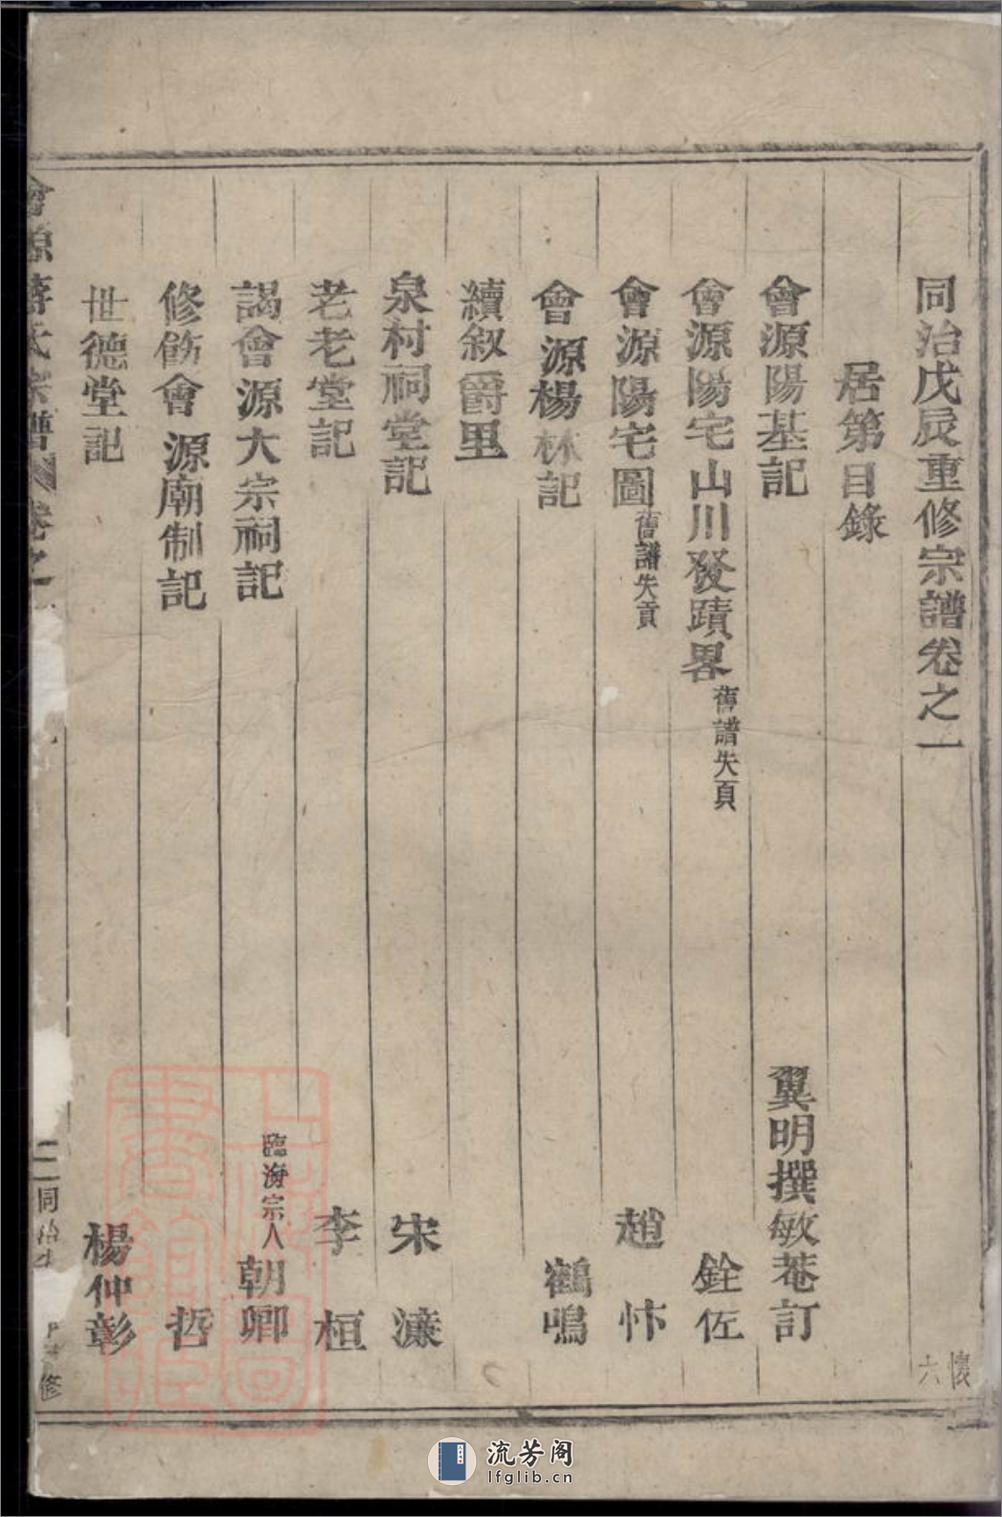 同治戊辰重修宗譜卷之一
懷六
居第目錄
會源陽基記 翼明撰敏菴訂
會源陽宅山川發蹟畧 舊譜失頁 銓佐
會源陽宅圖 舊譜失頁 趙忭
會源楊林記 鶴鳴
續叙爵里
泉村祠堂記 宋濂
老老堂記 李桓
謁會源大宗祠記 臨海宗人 朝卿
修飭會源廟制記 哲
世德堂記 楊仲彰
會源蔣氏宗譜 卷之一
二 同治 修
上海圖書館藏
流芳阁
lfglib.cn